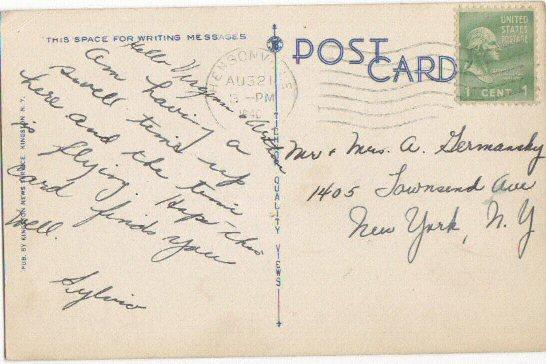 THIS SPACE FOR WRITING MESSAGES
POST CARD
UNITED
STATES
POSTAGE
1 CENT 1
AUG 21
5 - PM
Hello Virginia & Arthur
Am having a
swell time up
here and the time
is flying. Hope this
card finds you
well.
Sylvia
Mr & Mrs. A. Germansky
1405 Townsend Ave
New York, N.Y
PUB. BY KINGSTON NEWS SERVICE, KINGSTON, N.Y.
QUALITY VIEWS